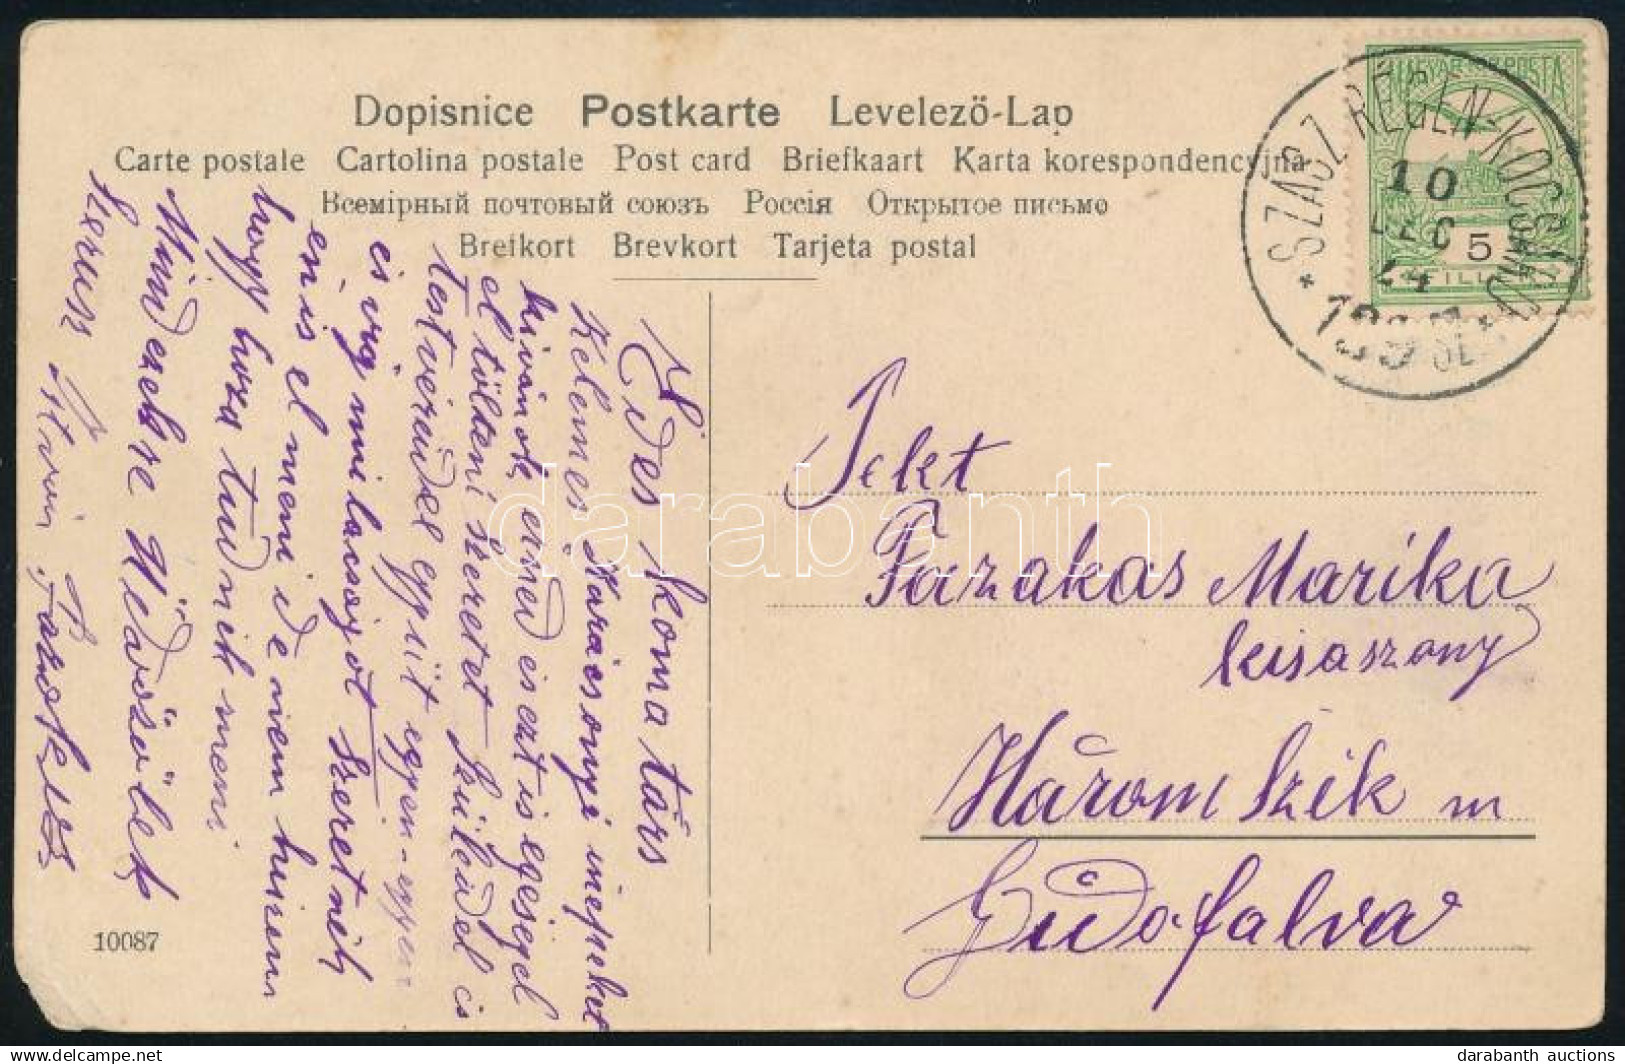 Dopisnice Postkarte Levelező-Lap
Carte postale Cartolina postale Post card Briefkaart Karta korespondencyjna
Всемірный почтовый союзъ Россія Открытое письмо
Brefkort Brevkort Tarjeta postal
MAGYAR KIR. POSTA
5
FILLÉR
* SZÁSZ RÉGEN-KOCSARD *
10
DEC
24
Édes koma társ
Kelemes Karácsonyi inepeket
kivánok erned és ezt is egeségel
el tölteni szeretet küiledel és
testvéreidel egyiit egyen-egyen
és irg mi lacsojot Szeretnék
én is el meni de nem hiszem
hogy haza tudnik meni
Mindezekre Üdvözöllek
Szerusz István Fazakas
Tekt
Fazakas Marika
kisaszony
Három Szék m
Gidofalva
10087
darabanth
www.darabanth-auctions.com